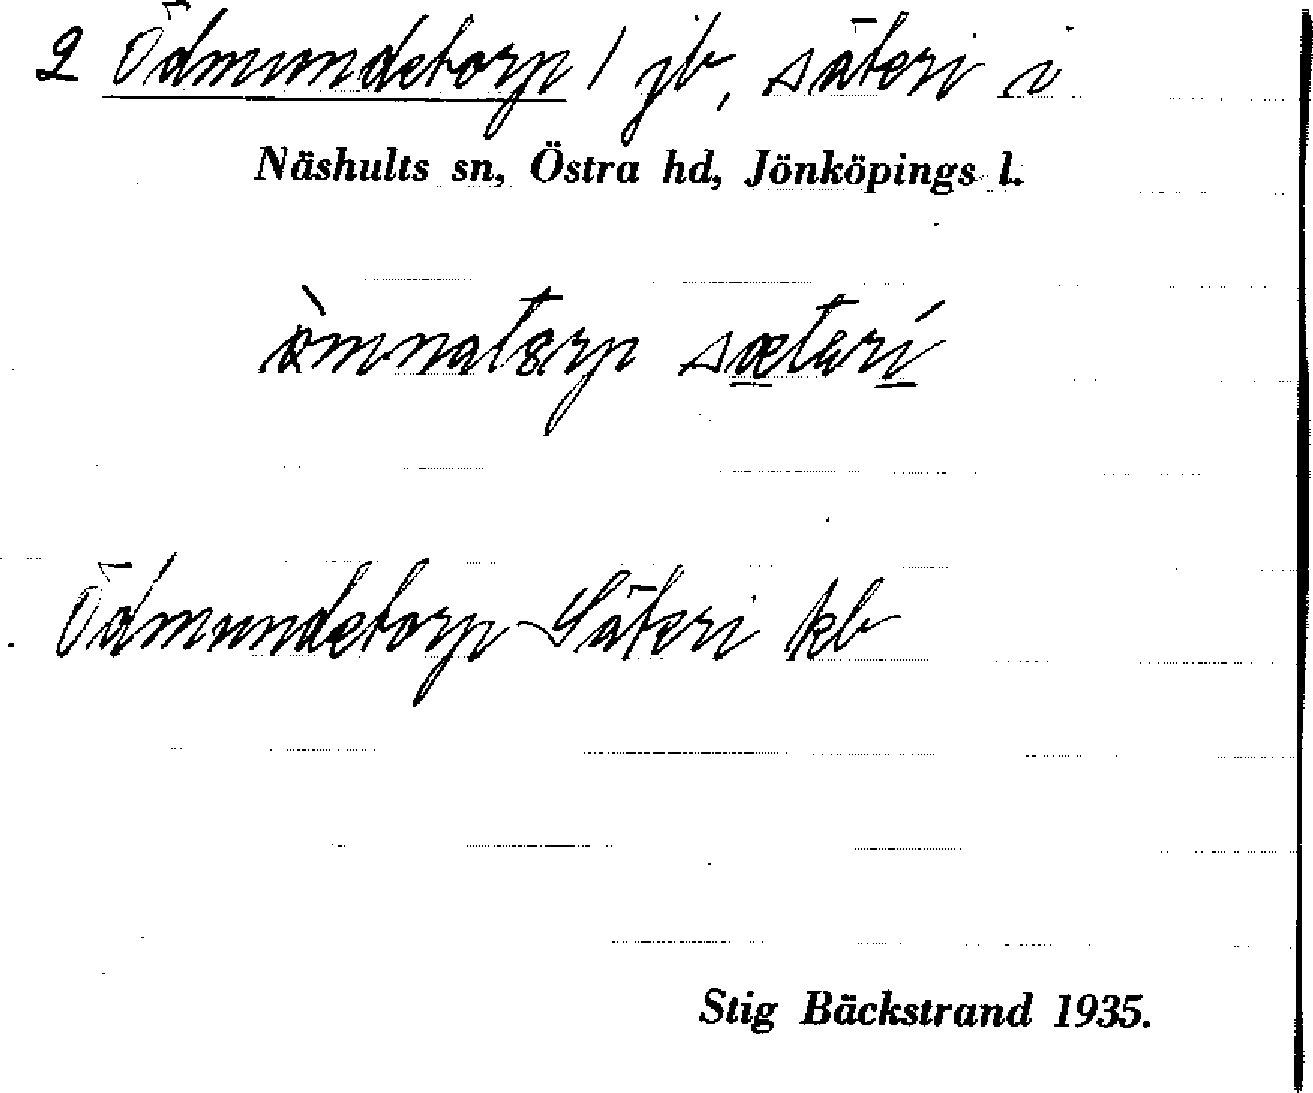 2 Ödmundetorp 1 jb, säteri i
Näshults sn, Östra hd, Jönköpings l.
sæterí
Ödmundetorp Säteri kb
Stig Bäckstrand 1935.